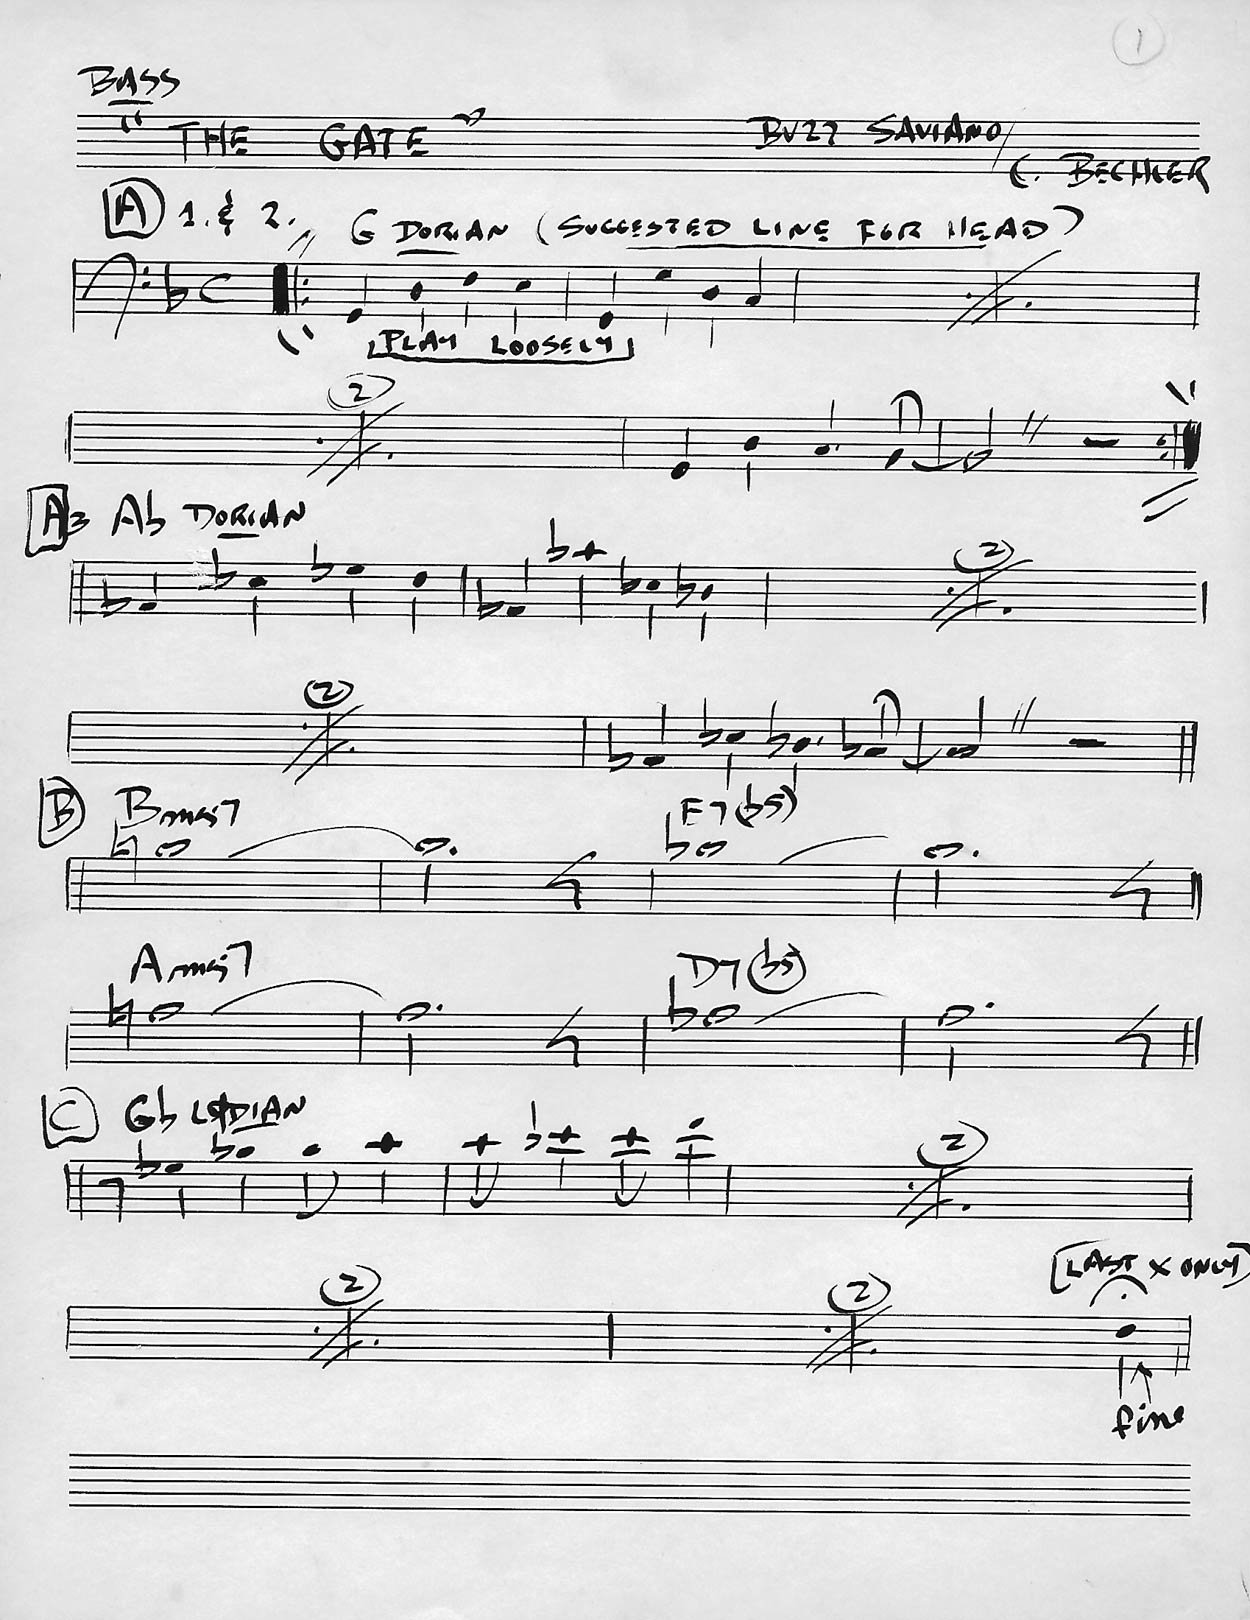 1
BASS
"THE GATE"
BUZZ SAVIANO/
C. BECHLER
A 1. & 2. G DORIAN (SUGGESTED LINE FOR HEAD)
[PLAY LOOSELY]
2
A3 Ab DORIAN
2
2
B Bmaj7 E7(b5)
Amaj7 D7(b5)
C Gb LYDIAN
2
[LAST X ONLY]
2 2
fine